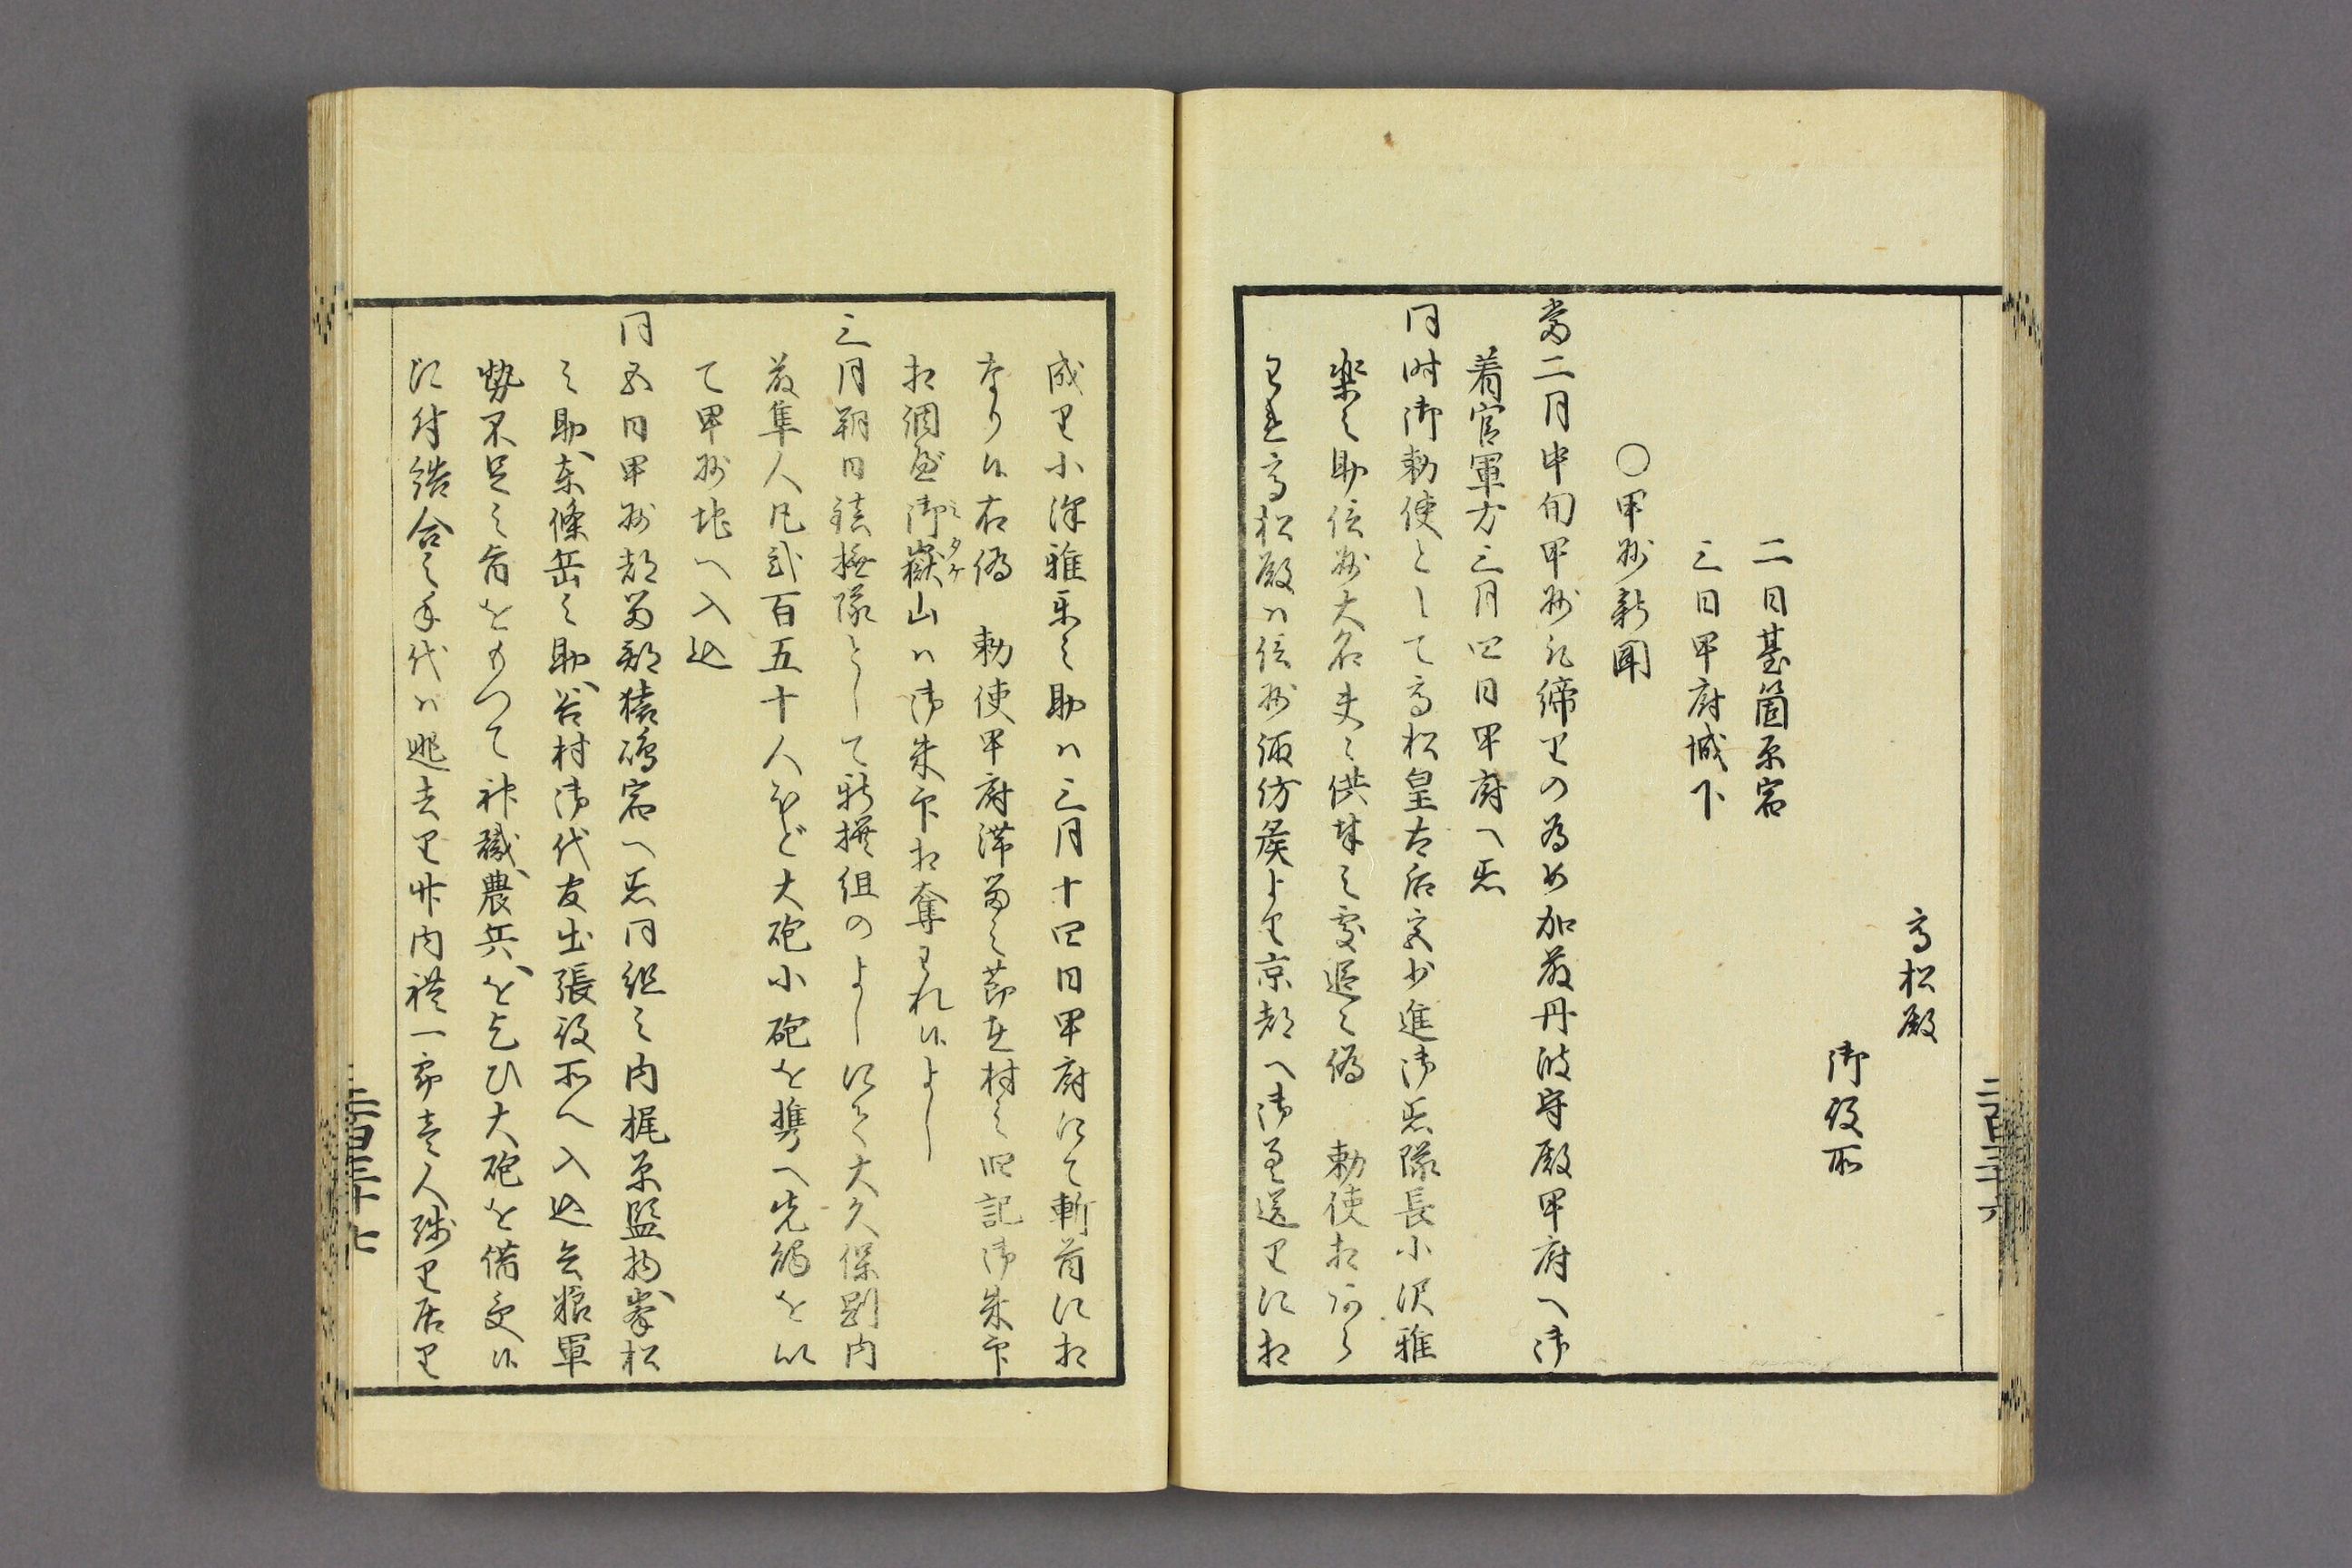 高松殿
御役所
二日䑓箇原宿
三日甲府城下
〇甲州新聞
當二月中旬甲州取締りの為め加藤丹波守殿甲府へ御
着官軍方三月四日甲府へ着
同時御勅使として高松皇太后宮少進御着隊長小沢雅
楽之助信州大名夫々供奉之處追々偽　勅使相分ら
れ高松殿ハ信州諏仿矦より京都へ御差送りに相
成り小沢雅楽之助ハ三月十四日甲府にて斬首に相
なり候右偽　勅使甲府滞留之節在村之旧記御朱印
相調御嶽山ハ御朱印相奪われ候よし
ミタケ
三月朔日鎮撫隊として新撰組のよしにて大久保剛内
藤隼人凡弐百五十人ほど大砲小砲を携へ先觸を以
て甲州地へ入込
同五日甲州都留郡猿橋宿へ着同組之内梶原監物峯松
之助東條岳之助谷村御代友出張役所へ入込兵粮軍
勢不足之旨をもつて神職農兵を乞ひ大砲を借受候
に付詰合之手代ハ逃去り其内一人残り居り
二百三十六
二百三十七